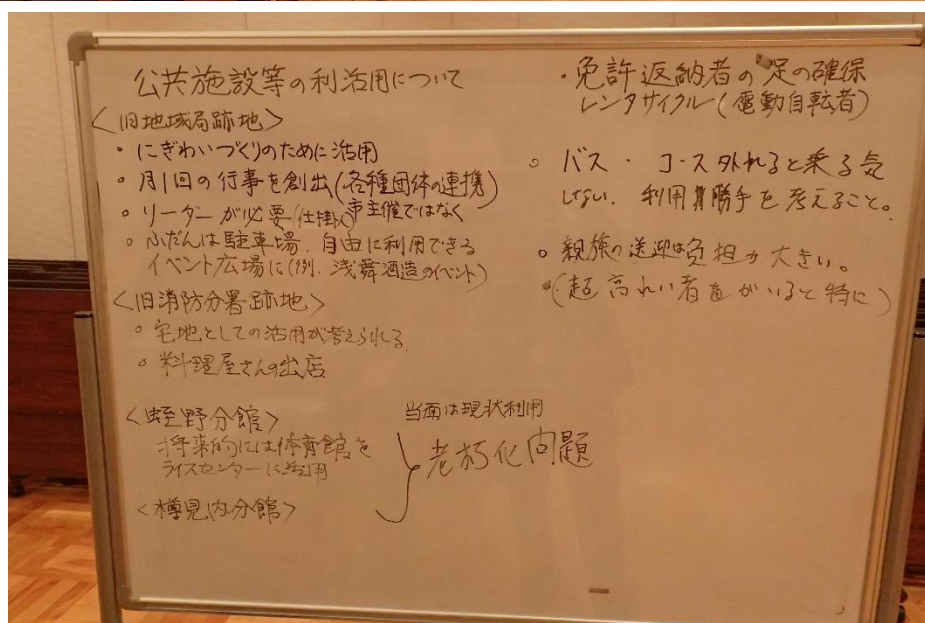 公共施設等の利活用について
<旧地域局跡地>
・にぎわいづくりのために活用
・月1回の行事を創出(各種団体の連携)
・リーダーが必要(仕掛人)市主催ではなく
・ふだんは駐車場、自由に利用できる
イベント広場に(例. 浅舞酒造のイベント)
<旧消防分署跡地>
・宅地としての活用が考えられる
・料理屋さんの出店
<蛭野分館>
将来的には体育館を
ライスセンターに活用
<樽見内分館>
当面は現状利用
老朽化問題
・免許返納者の足の確保
レンタサイクル(電動自転者)
・バス・コース外れると乗る気
しない. 利用勝手を考えること。
・親族の送迎は負担が大きい。
(超高れい者がいると特に)